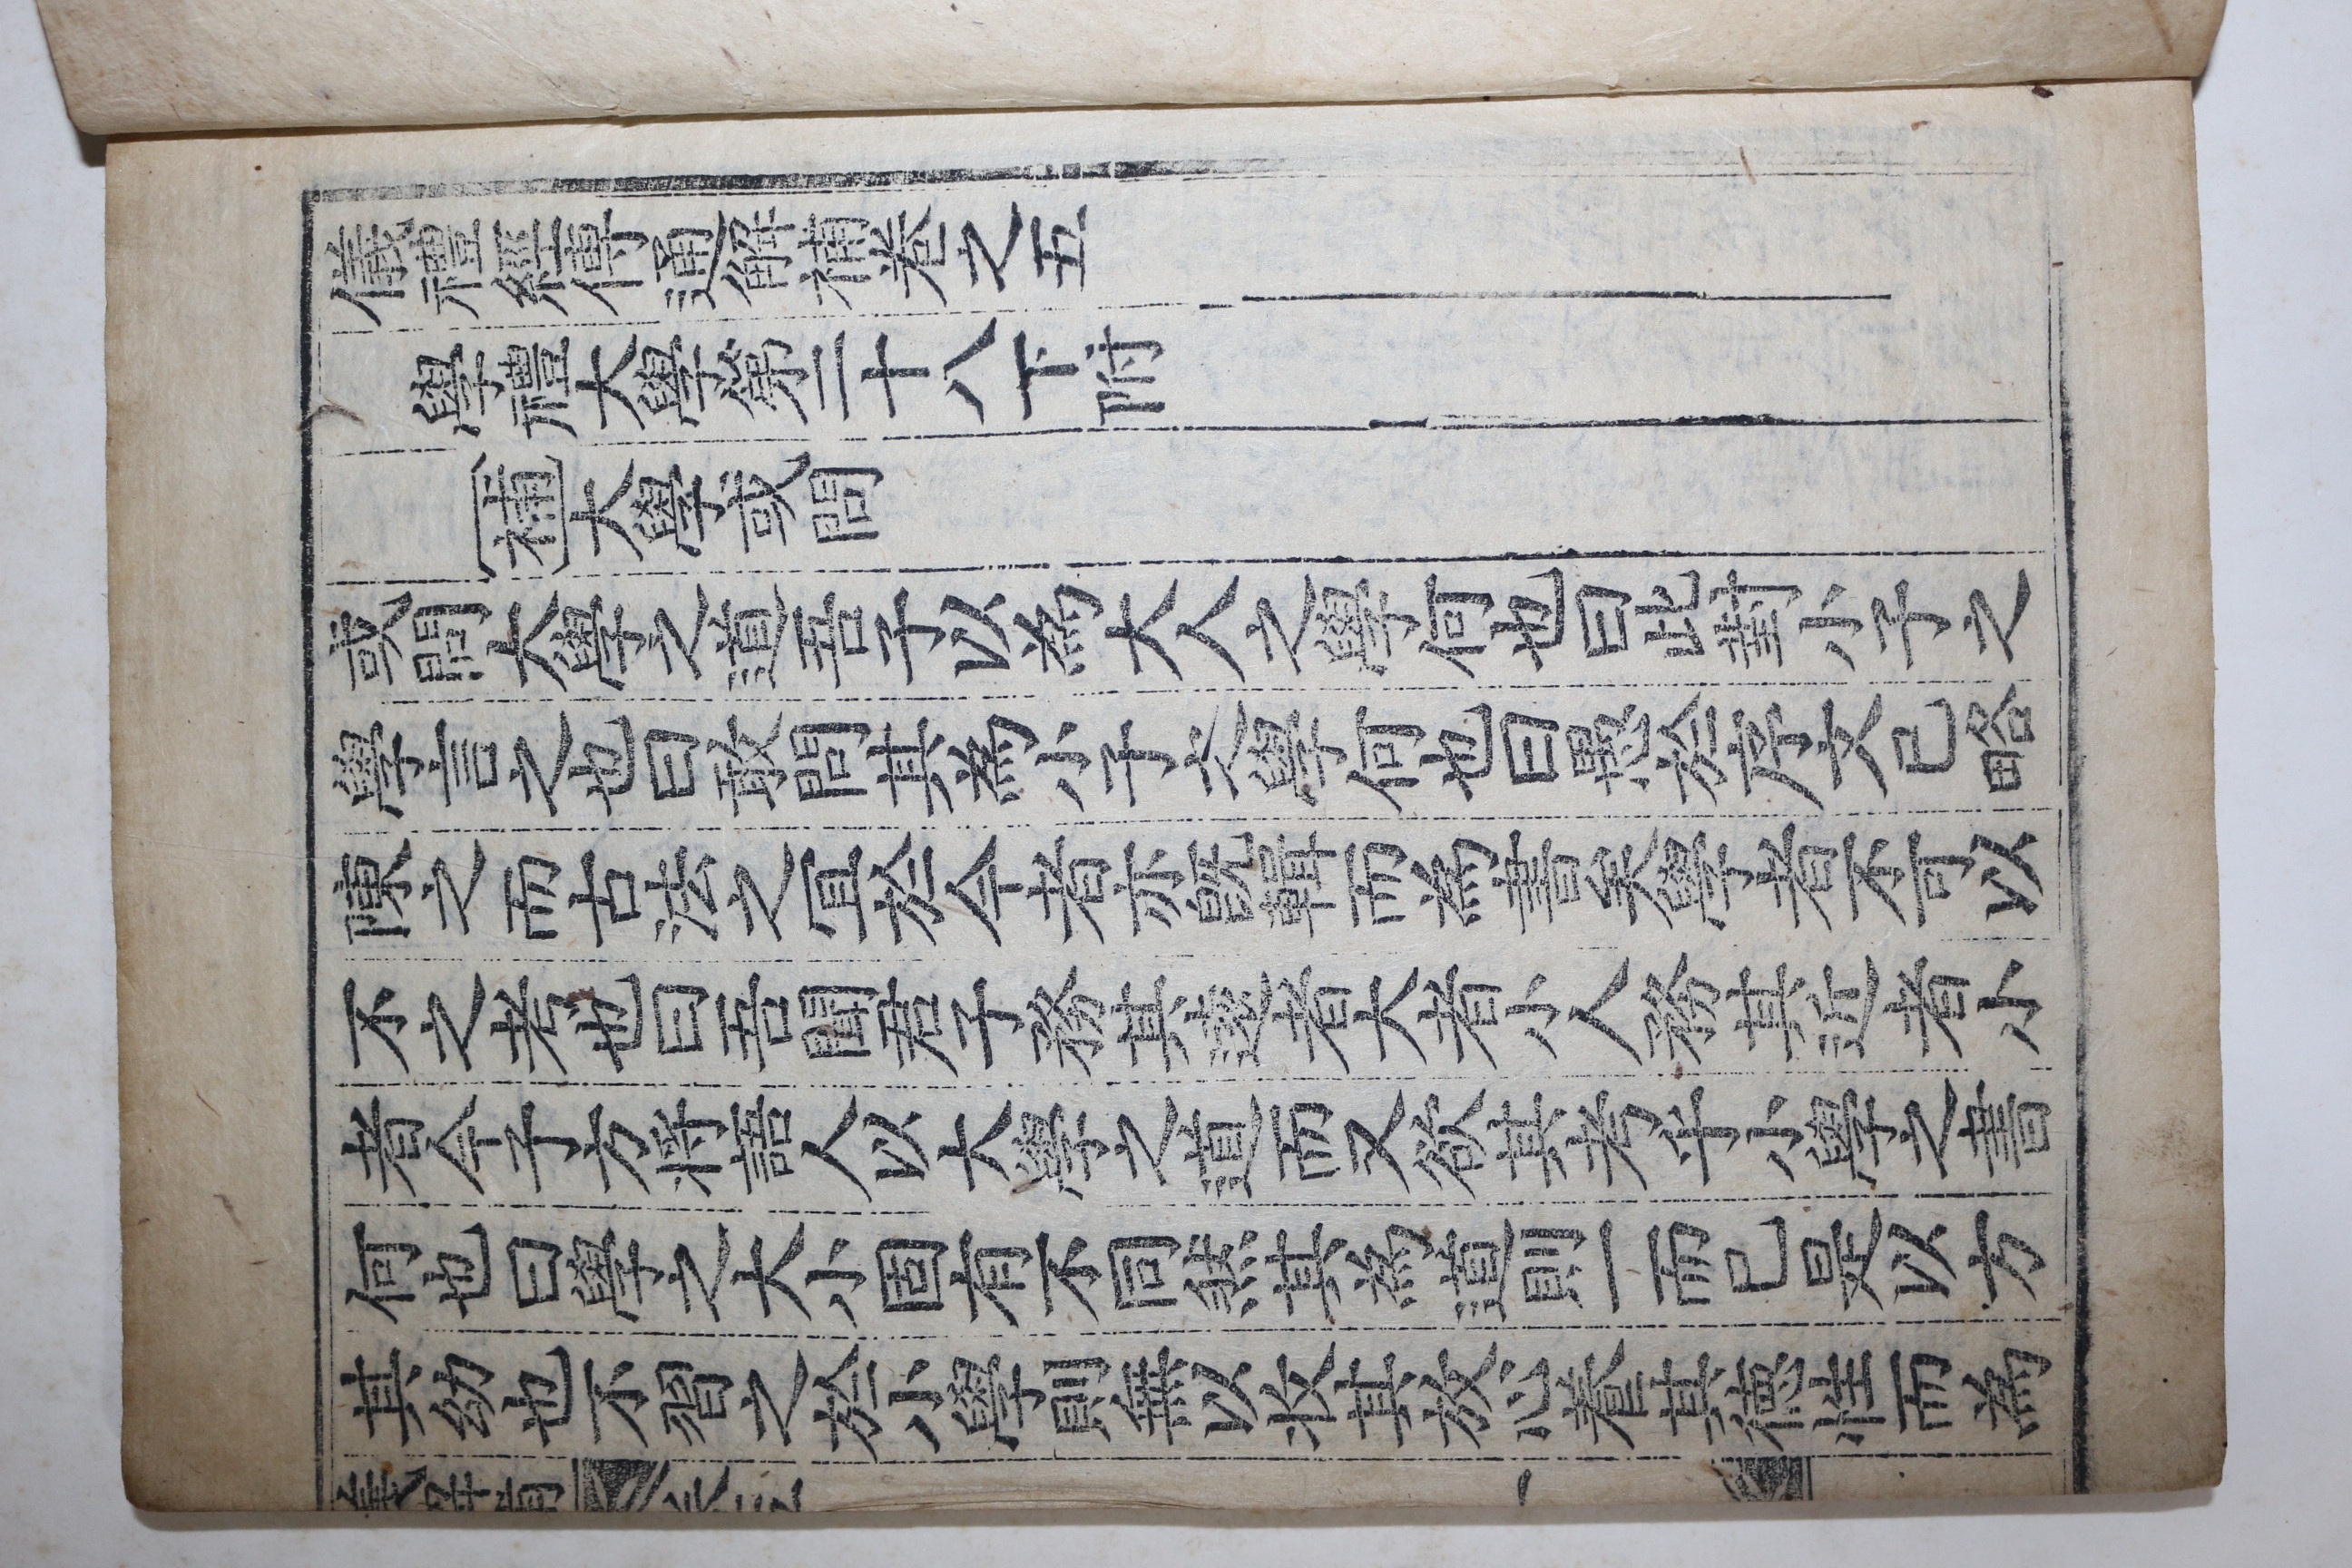 儀禮經傳通解補卷之五
學禮大學第二十八下附
〔補〕大學或問
或問大學之道吾子以爲大人之學何也曰此對小子之
學言之也曰敢問其爲小子之學何也曰愚於序文已略
陳之而古法之宜於今者亦旣輯而爲書矣學者不可以
不之考也曰吾聞君子務其遠者大者小人務其近者小
者今子方將語人以大學之道而又欲其考乎小學之書
何也曰學之大小固有不同然其爲道則一而已是以方
其幼也不習之於小學則無以收其放心養其德性而爲